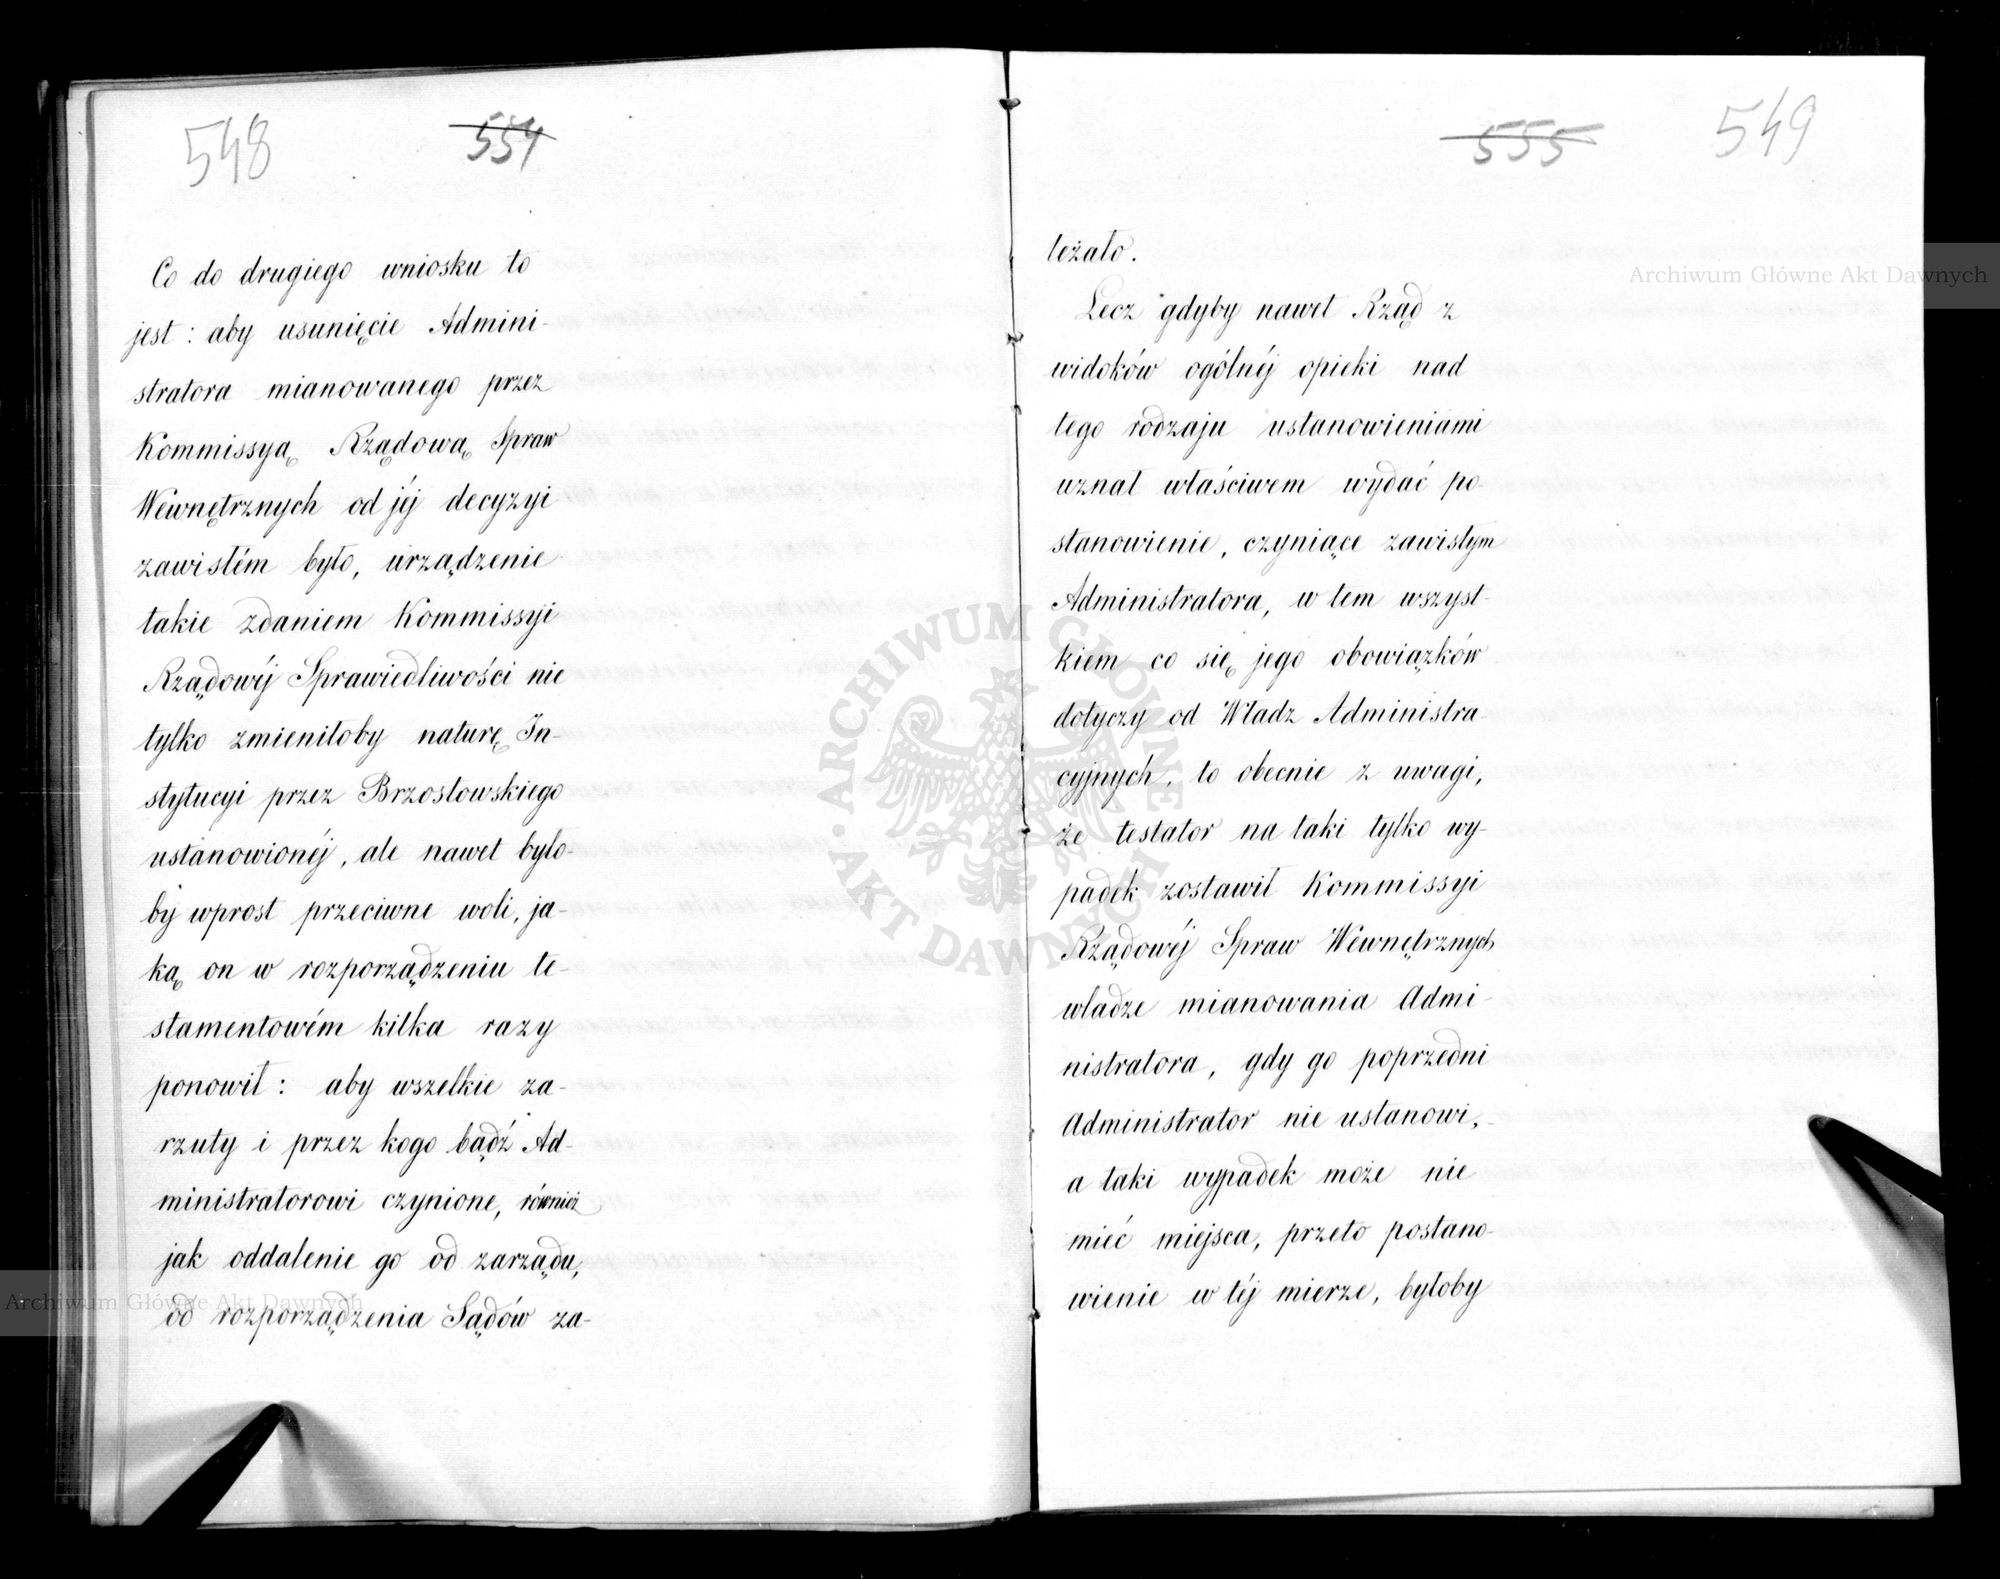 548 554
Co do drugiego wniosku to
jest: aby usunięcie Admini-
stratora mianowanego przez
Kommissyą Rządową Spraw
Wewnętrznych od jéj decyzyi
zawisłém było, urządzenie
takie zdaniem Kommissyi
Rządowéj Sprawiedliwości nie
tylko zmieniłoby naturę In-
stytucyi przez Brzostowskiego
ustanowionéj, ale nawet było-
by wprost przeciwne woli, ja-
ką on w rozporządzeniu te-
stamentowém kilka razy
ponowił: aby wszelkie za-
rzuty i przez kogo bądź Ad-
ministratorowi czynione, również
jak oddalenie go od zarządu,
od rozporządzenia Sądów za-
555 549
leżało.
Lecz gdyby nawet Rząd z
widoków ogólnéj opieki nad
tego rodzaju ustanowieniami
uznał właściwem wydać po-
stanowienie, czyniące zawisłym
Administratora, w tem wszyst-
kiem co się jego obowiązków
dotyczy od Władz Administra-
cyjnych, to obecnie z uwagi,
że testator na taki tylko wy-
padek zostawił Kommissyi
Rządowéj Spraw Wewnętrznych
władze mianowania Admi-
nistratora, gdy go poprzedni
Administrator nie ustanowi,
a taki wypadek może nie
mieć miejsca, przeto postano-
wienie w téj mierze, byłoby
Archiwum Główne Akt Dawnych
Archiwum Główne Akt Dawnych
ARCHIWUM GŁÓWNE
AKT DAWNYCH